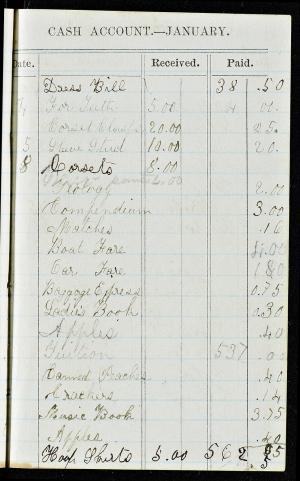 CASH ACCOUNT.—JANUARY.
Date. Received. Paid.
Dress Bill 38 .50
For Tuth 5.00
Corset Clasps 20.00 25.
5 Glove 10.00 20.
8 Corsets 8.00
2.00
Compendium 3.00
Matches .16
Boat Fare
Car Fare
Baggage Express 0.75
Ladies Book 0.30
Apples .40
Tuition 537 .00
Canned Peaches .40
Crackers .14
Music Book 3.75
Apples .40
Hoop Skirts 5.00 562